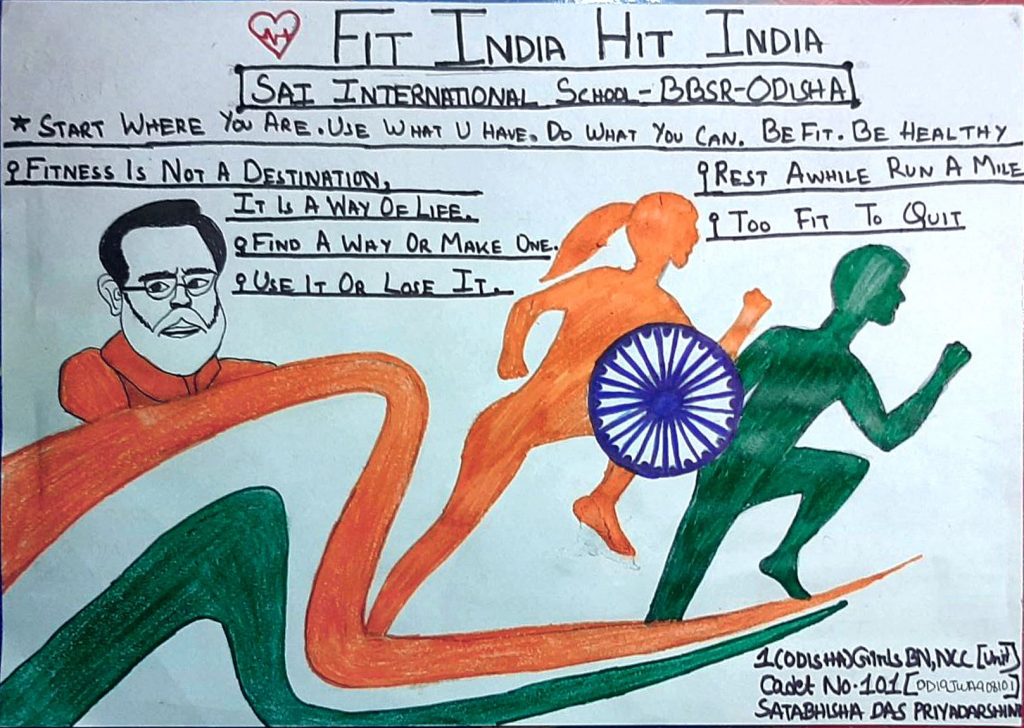 FIT INDIA HIT INDIA
SAI INTERNATIONAL SCHOOL-BBSR-ODISHA
*START WHERE YOU ARE. USE WHAT U HAVE. DO WHAT YOU CAN. BE FIT. BE HEALTHY
FITNESS IS NOT A DESTINATION,
IT IS A WAY OF LIFE.
FIND A WAY OR MAKE ONE.
USE IT OR LOSE IT.
REST AWHILE RUN A MILE
TOO FIT TO QUIT
1(ODISHA)Girls BN, NCC [Unit]
Cadet No. 101 [OD19JWA908101]
SATABHISHA DAS PRIYADARSHINI